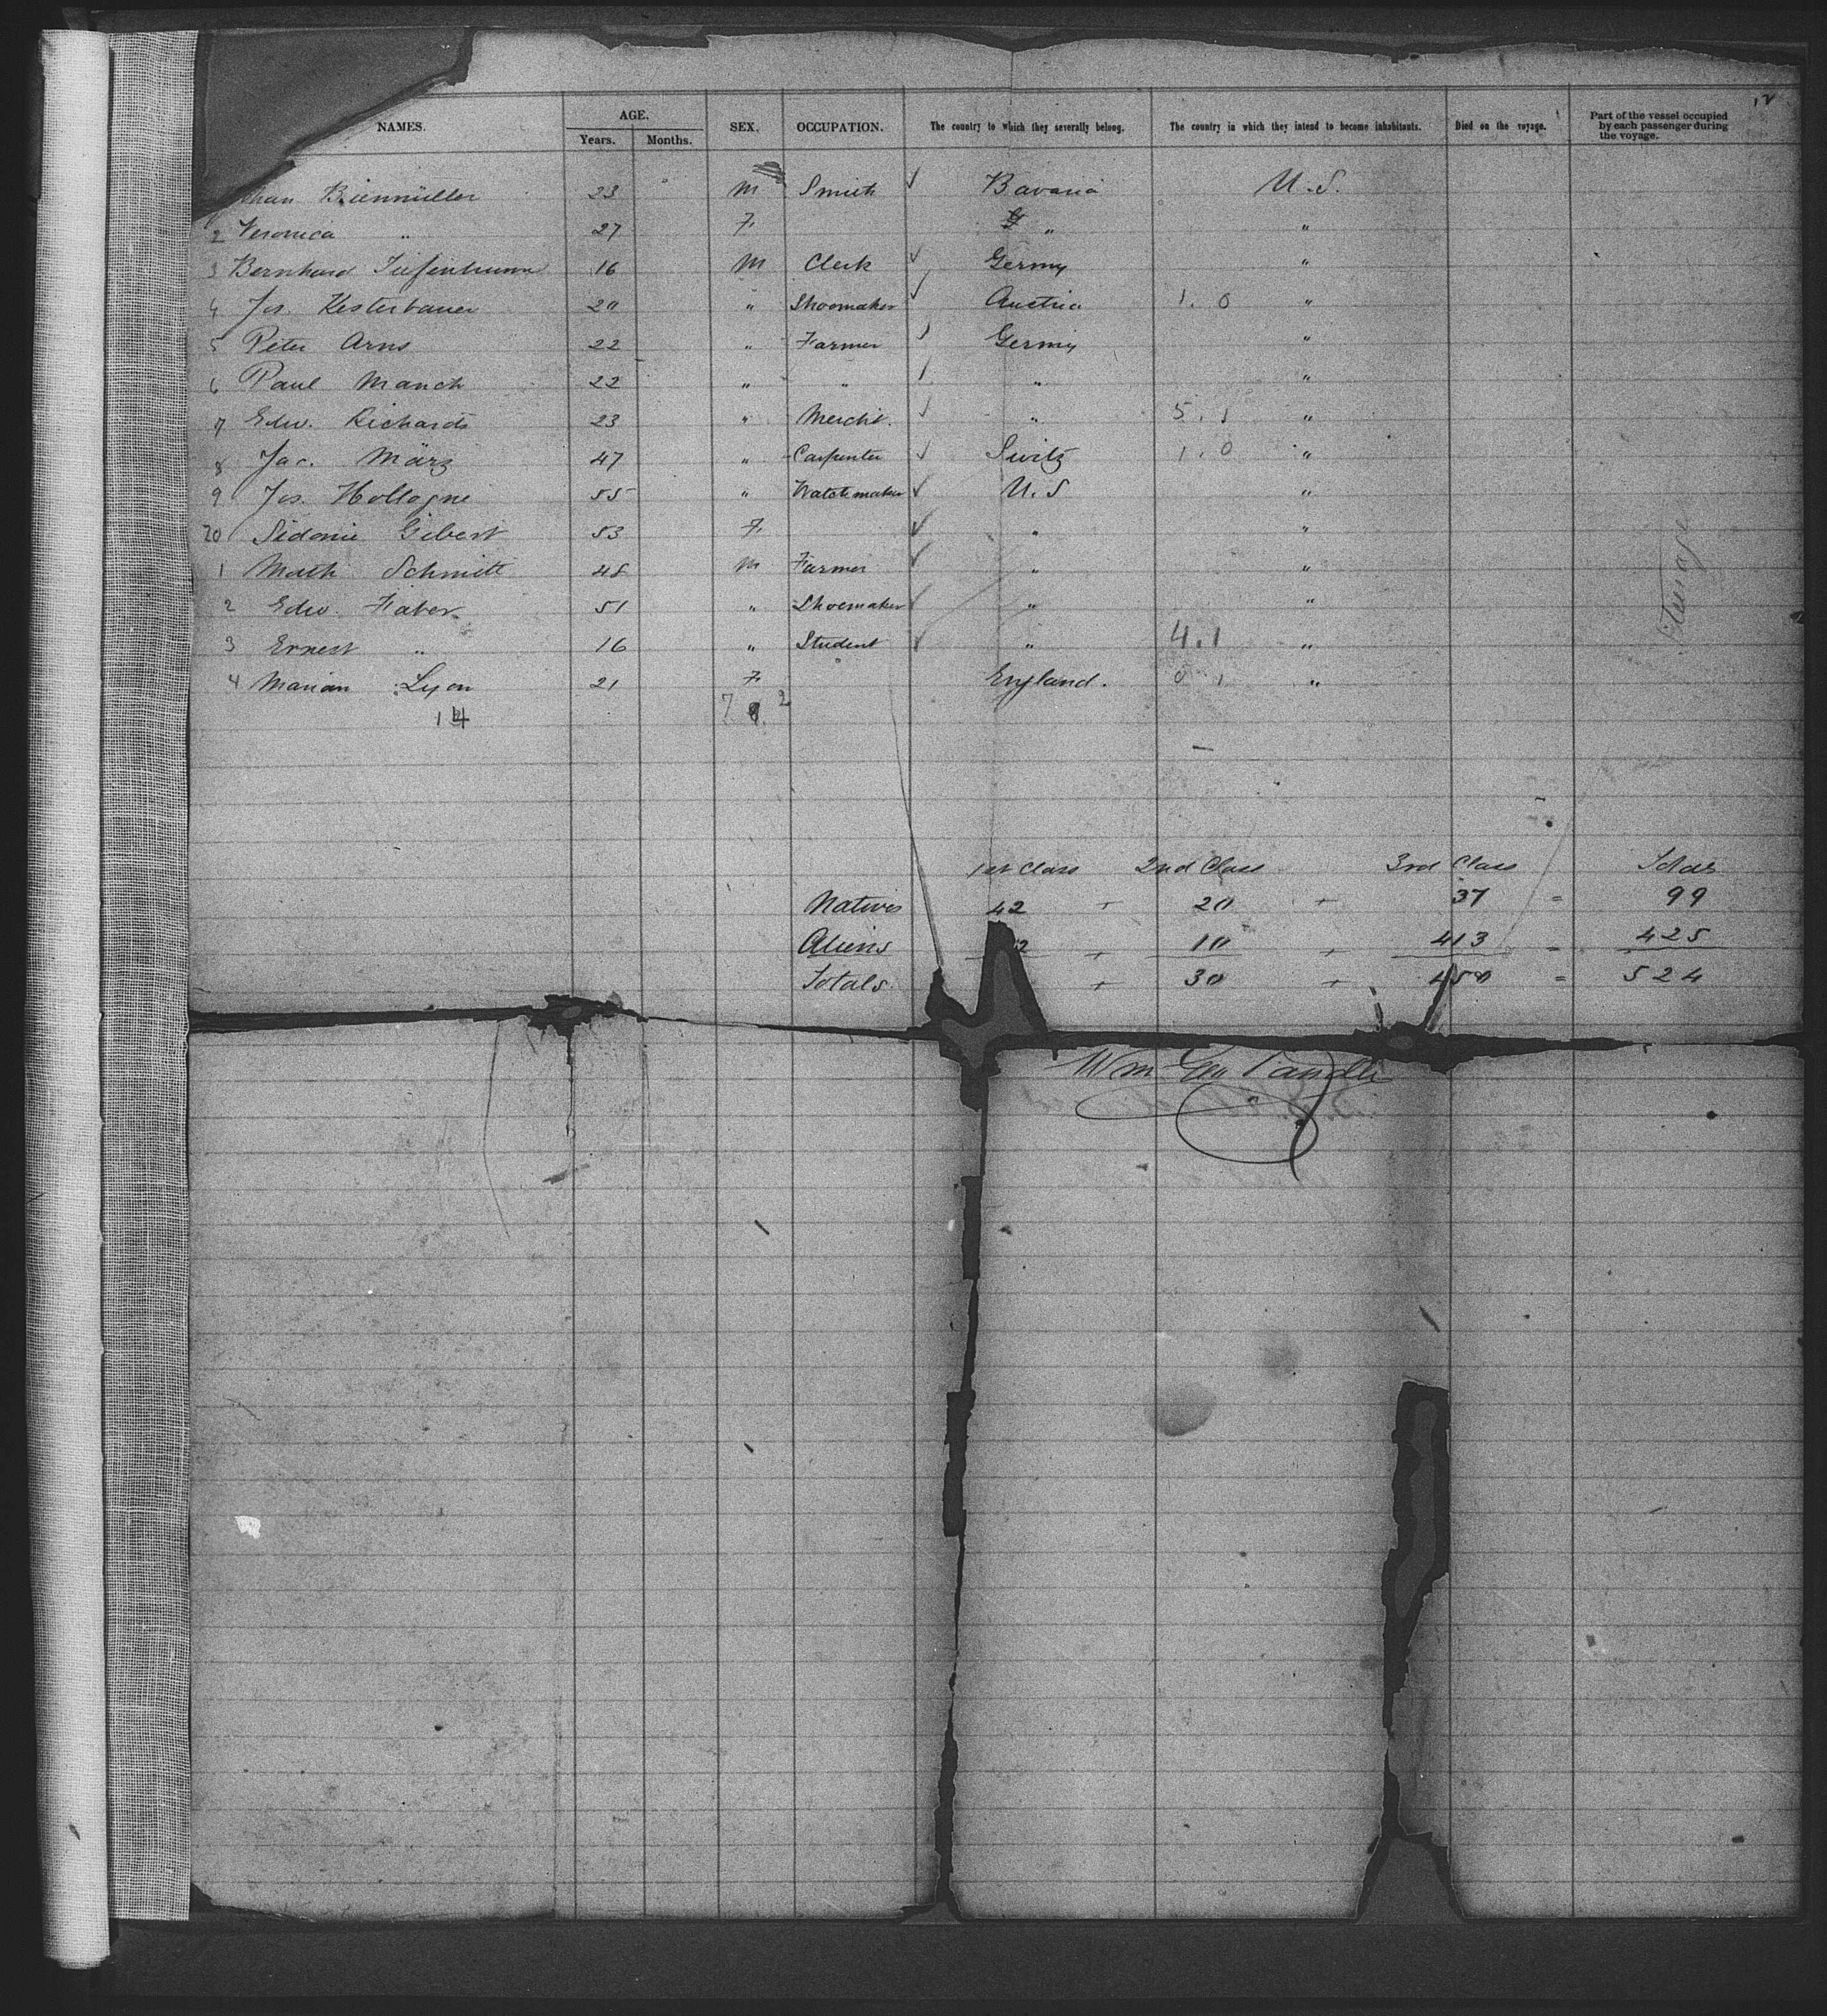 12
NAMES. AGE. SEX. OCCUPATION. The country to which they severally belong. The country in which they intend to become inhabitants. Died on the voyage. Part of the vessel occupied by each passenger during the voyage.
Years. Months.
Bienmüller 23 M Smith ✓ Bavaria U.S.
2 Veronica " 27 F. " "
3 Bernhard 16 M Clerk ✓ Germy "
4 Jos. Kesterbauer 20 " Shoemaker ✓ Austria 1. 0 "
5 Peter Arns 22 " Farmer ✓ Germy "
6 Paul Manch 22 " " " "
7 Edw. Richards 23 " Mercht. ✓ " 5. 1 "
8 Jac. März 47 " Carpenter ✓ Switz 1. 0 "
9 Jos. Hollogne 55 " Watchmaker ✓ U.S "
20 Sidonie Gibert 53 F. ✓ " "
1 Math Schmitt 48 M Farmer ✓ " "
2 Edw. Faber 51 " Shoemaker ✓ " "
3 Ernest " 16 " Student ✓ " 4.1 "
4 Marian Lyon 21 F. England. 0 1 "
14 2
Steerage
1st Class 2nd Class 3rd Class Totals
Natives 42 + 20 + 37 = 99
Aliens 2 + 10 + 413 = 425
Totals + 30 + 450 = 524
Wm Geo